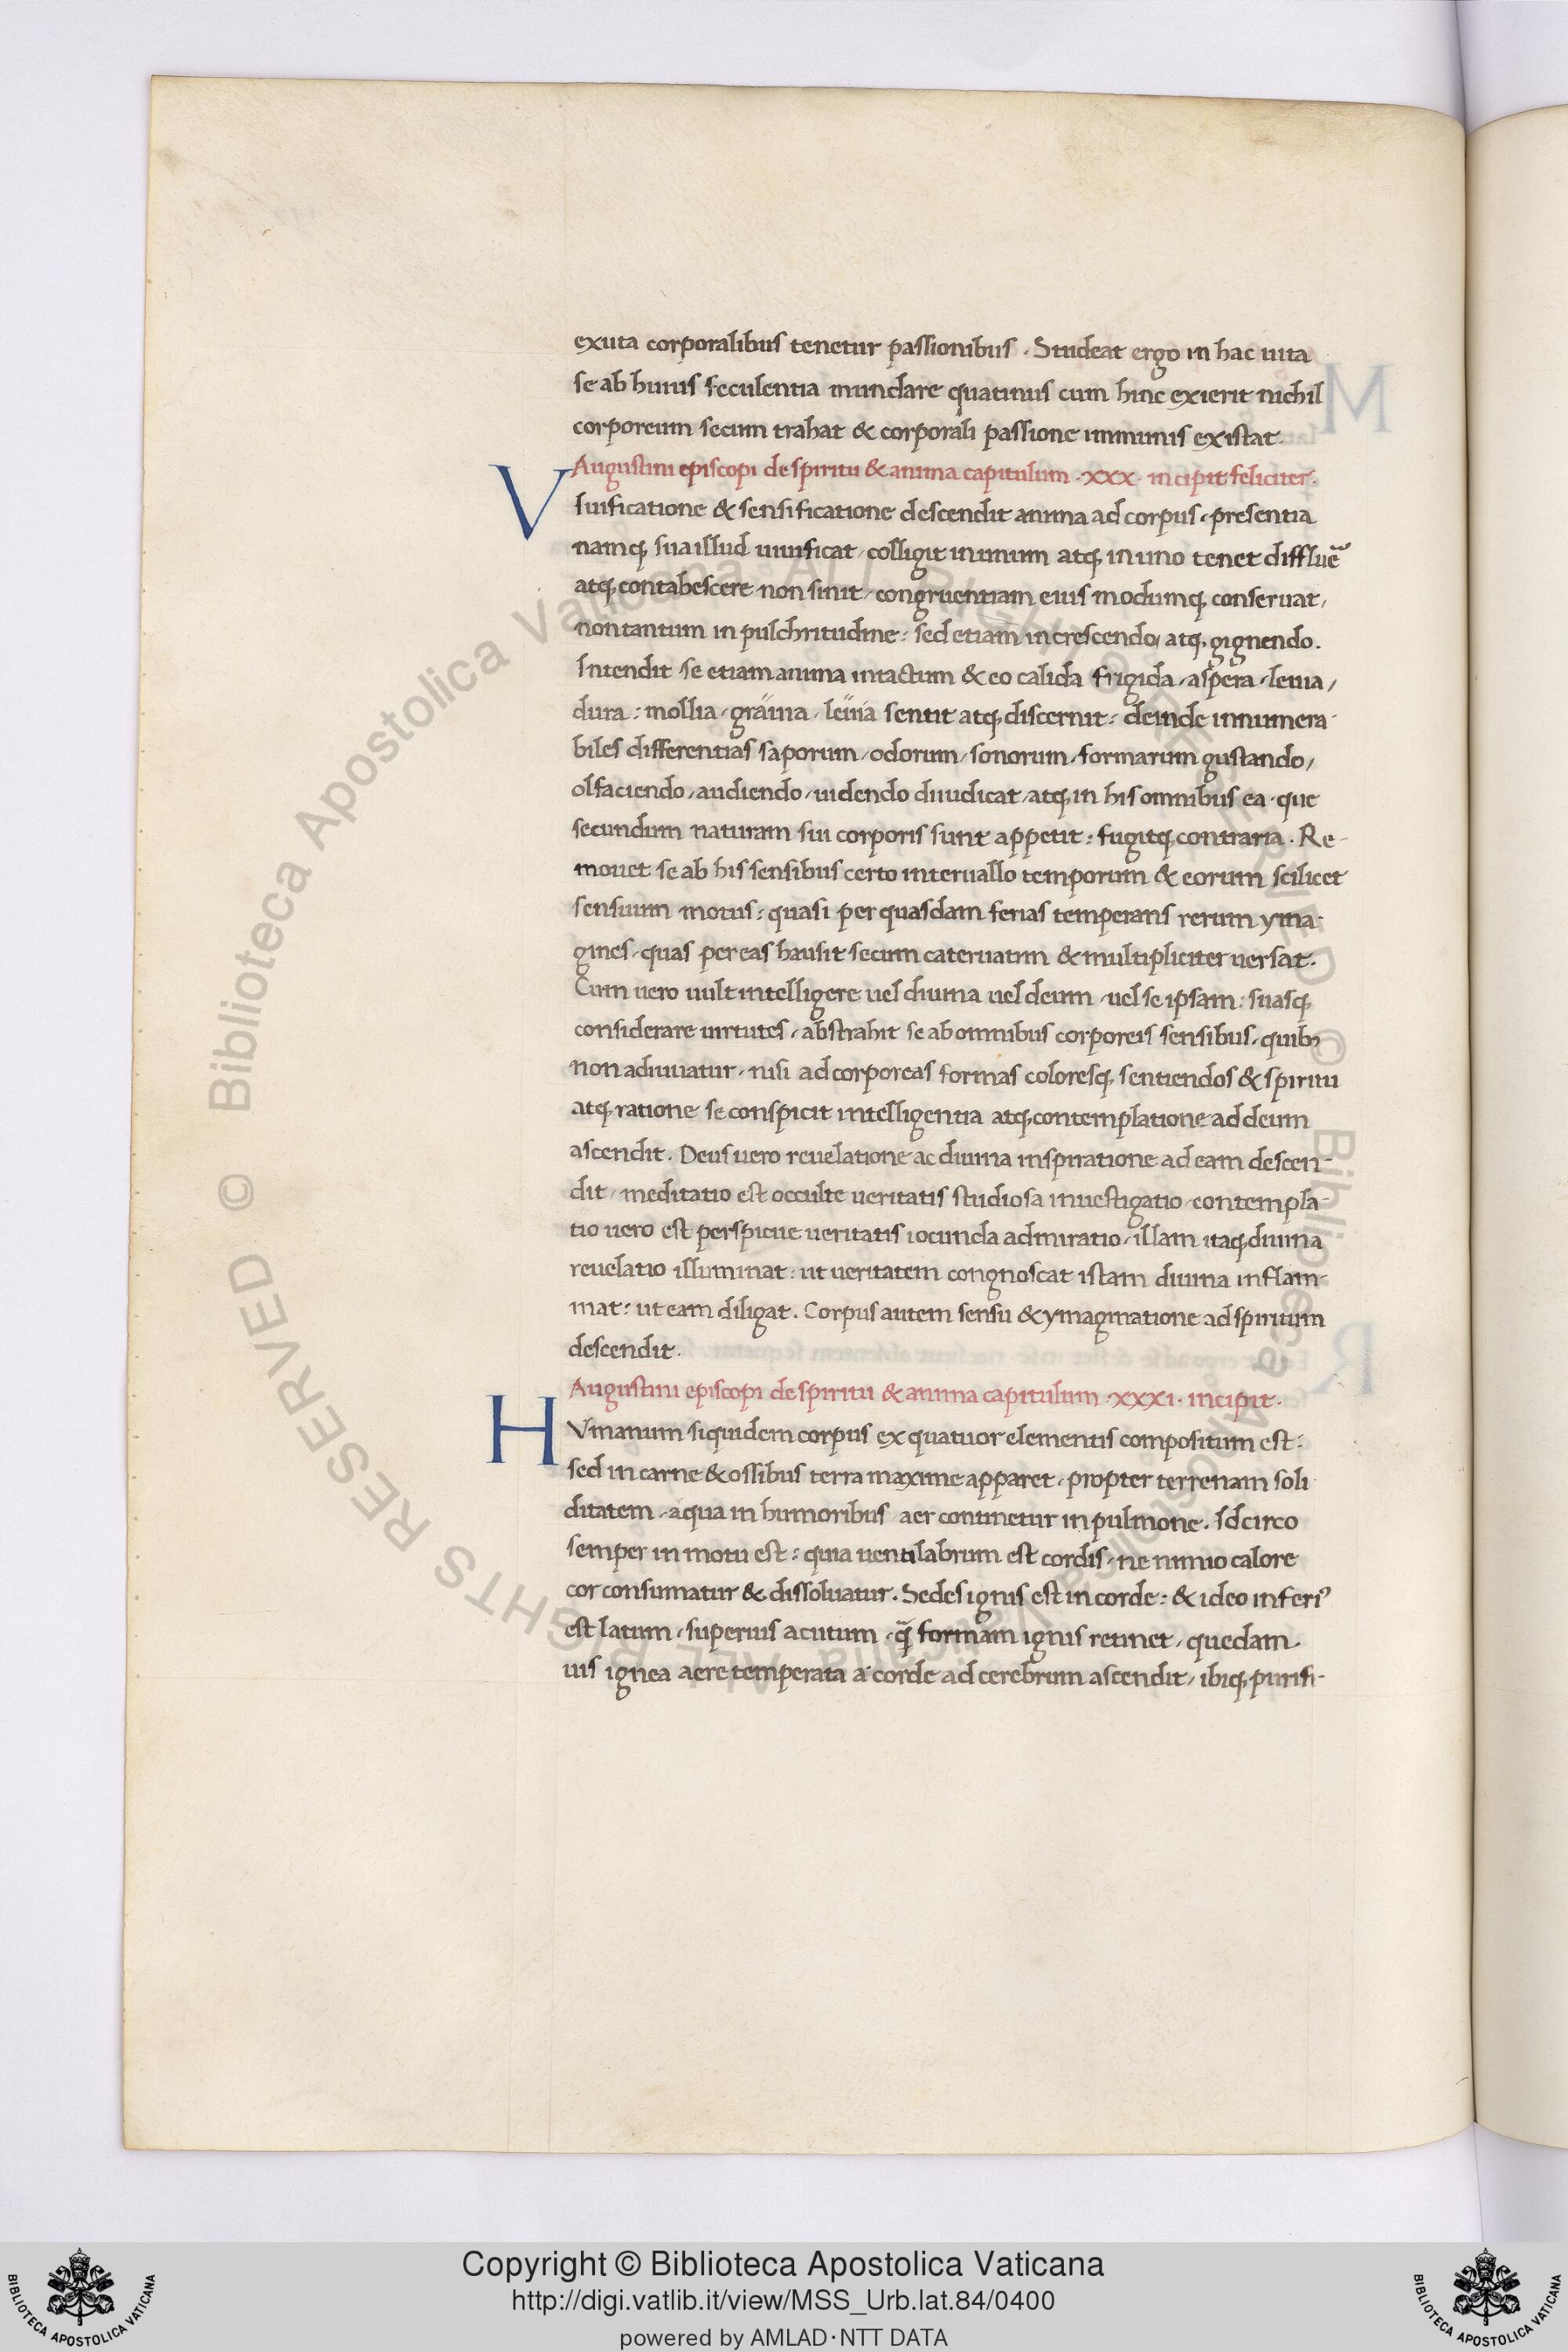 exuta corporalibus tenetur passionibus . Studeat ergo in hac uita
se ab huius feculentia mundare quatinus cum hinc exierit nichil
corporeum secum trahat & corporali passione immunis existat .
Augustini episcopi de spiritu & anima capitulum . xxx . incipit feliciter .
V Iuificatione & sensificatione descendit anima ad corpus / presentia
namq; sua illud uiuificat / colligit in unum atq; in uno tenet diffluē
atq; contabescere non sinit / congruentiam eius modumq; conseruat /
non tantum in pulchritudine : sed etiam in crescendo / atq; gignendo .
Intendit se etiam anima in tactum & eo calida frigida / aspera / leuia /
dura : mollia / grauia / leuia sentit atq; discernit : deinde innumera-
biles differentias saporum / odorum / sonorum / formarum gustando /
olfaciendo / audiendo / uidendo diiudicat / atq; in his omnibus ea / que
secundum naturam sui corporis sunt appetit : fugitq; contraria . Re-
mouet se ab his sensibus certo interuallo temporum & eorum scilicet
sensuum motus : quasi per quasdam ferias temperans rerum yma-
gines / quas per eas hausit secum cateruatim & multipliciter uersat .
Cum uero uult intelligere uel diuina uel deum / uel se ipsam : suasq;
considerare uirtutes / abstrahit se ab omnibus corporeis sensibus / quib;
non adiuuatur / nisi ad corporeas formas coloresq; sentiendos & spiritu
atq; ratione se conspicit intelligentia atq; contemplatione ad deum
ascendit . Deus uero reuelatione ac diuina inspiratione ad eam descen-
dit / meditatio est occulte ueritatis studiosa inuestigatio / contempla-
tio uero est perspicue ueritatis iocunda admiratio / illam itaq; diuina
reuelatio illuminat : ut ueritatem congnoscat istam diuina inflam-
mat : ut eam diligat . Corpus autem sensu & ymaginatione ad spiritum
descendit .
Augustini episcopi de spiritu & anima capitulum . xxxi . incipit .
H Vmanum siquidem corpus ex quatuor elementis compositum est :
sed in carne & ossibus terra maxime apparet / propter terrenam soli-
ditatem / aqua in humoribus / aer continetur in pulmone . Idcirco
semper in motu est : quia uentilabrum est cordis / ne nimio calore
cor consumatur & dissoluatur . Sedes ignis est in corde : & ideo inferi⁹
est latum / superius acutum / q̄ formam ignis retinet / quedam
uis ignea aere temperata a corde ad cerebrum ascendit / ibiq; purifi-
© Biblioteca Apostolica Vaticana ALL RIGHTS RESERVED © Biblioteca Apostolica Vaticana ALL RIGHTS RESERVED
Copyright © Biblioteca Apostolica Vaticana
http://digi.vatlib.it/view/MSS_Urb.lat.84/0400
powered by AMLAD·NTT DATA
BIBLIOTECA APOSTOLICA VATICANA
BIBLIOTECA APOSTOLICA VATICANA